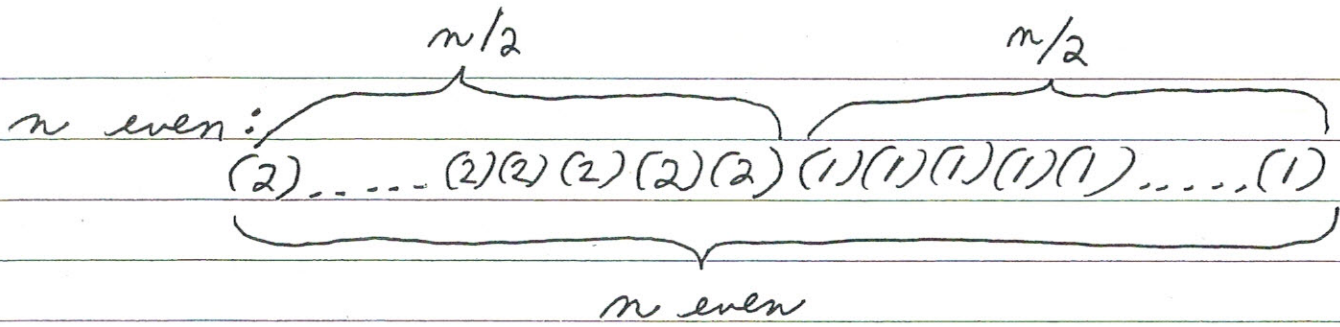 n/2 n/2
n even:
(2)......(2)(2)(2)(2)(2)(1)(1)(1)(1)(1).....,(1)
n even